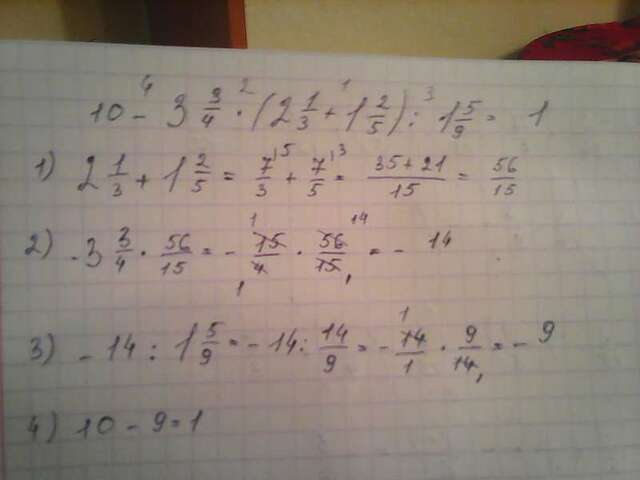 10 - 3 3/4 · (2 1/3 + 1 2/5) : 1 5/9 = 1
1) 2 1/3 + 1 2/5 = 7/3 + 7/5 = (35+21)/15 = 56/15
2) - 3 3/4 · 56/15 = - 15/4 · 56/15 = - 14
3) - 14 : 1 5/9 = - 14 : 14/9 = - 14/1 · 9/14 = - 9
4) 10 - 9 = 1